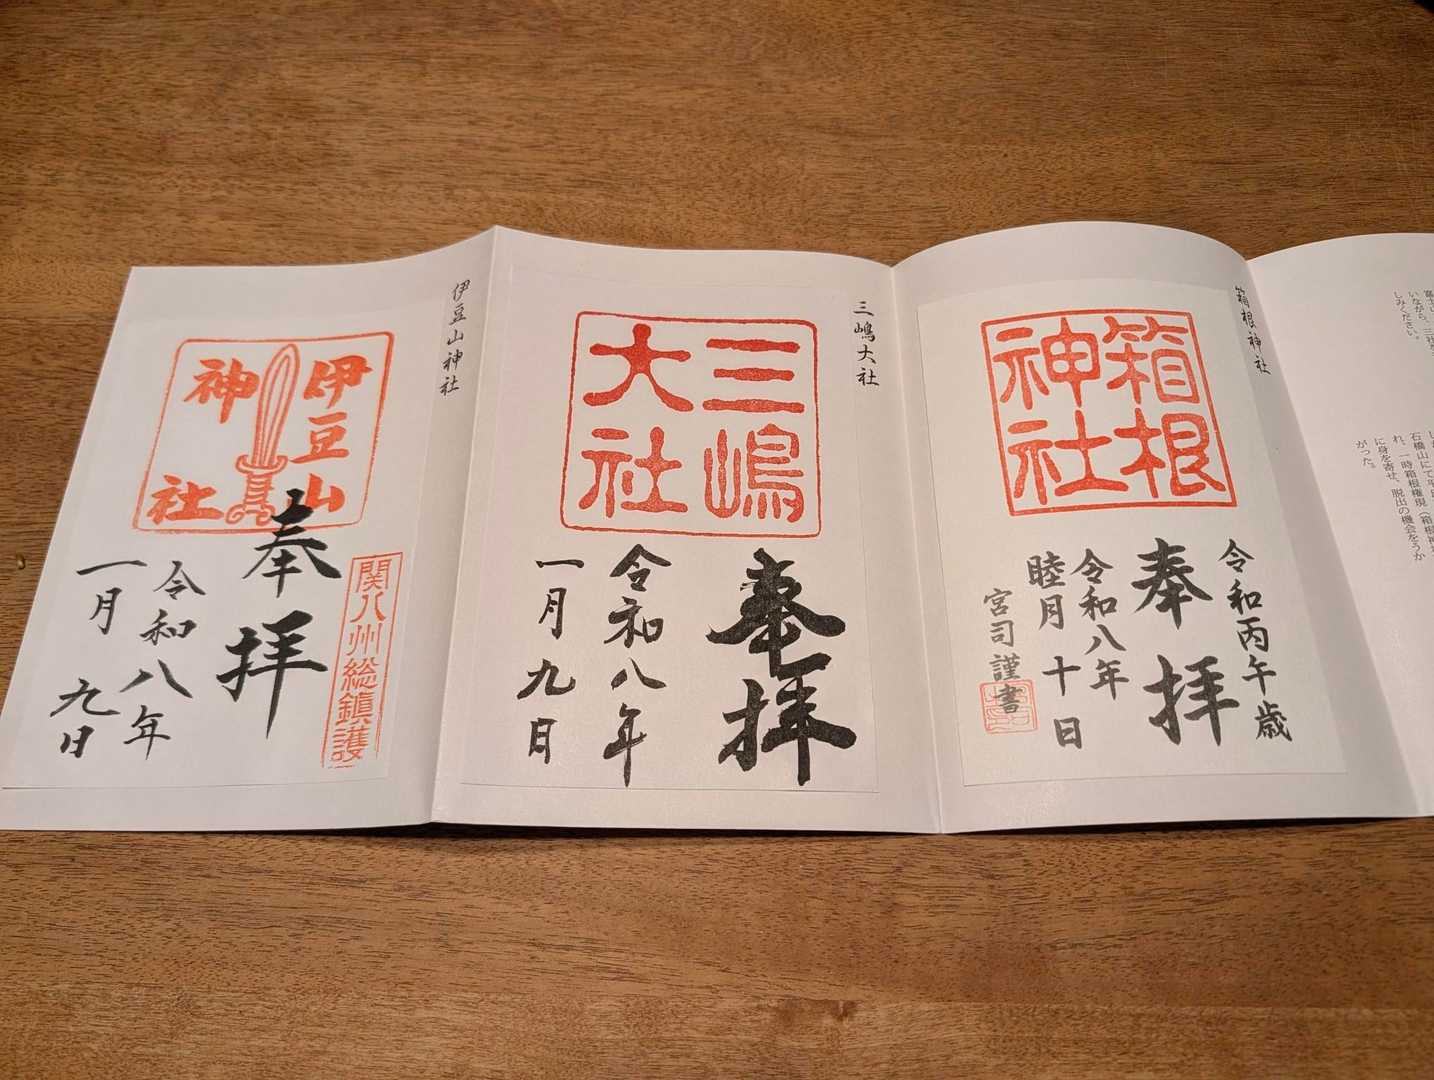 しみください。
石橋山にて
れ、一時箱根権現(箱根神
に身を寄せ、脱出の機会をうか
がった。
箱根神社
箱根
神社
令和丙午歳
奉拝
令和八年
睦月十日
宮司謹書
三嶋大社
三嶋
大社
奉拝
令和八年
一月九日
伊豆山神社
伊豆山
神社
関八州総鎮護
奉拝
令和八年
一月九日